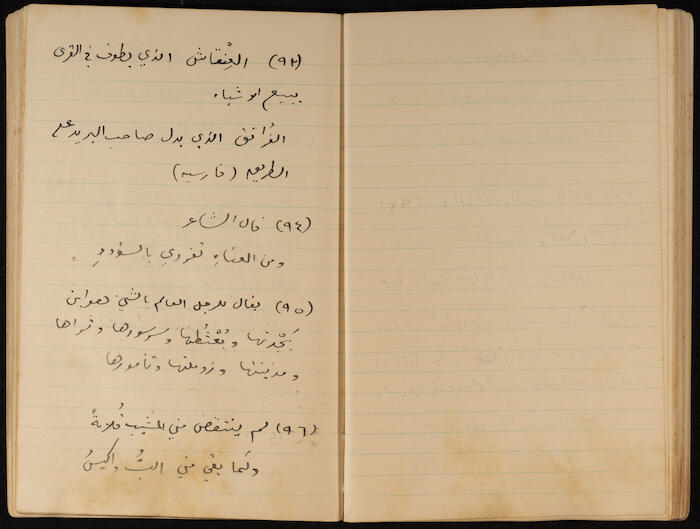 (٩٣) العِنْقاش الذي يطوف في القرى
يبيع الاشياء
الفُرانق الذي يدل صاحب البريد على
الطريق (فارسية)
(٩٤) قال الشاعر
ومن العناءِ تفردي بالسؤددِ
(٩٥) يقال للرجل العالم بالشي هو ابن
بَجْدتها وبُعْثُطها وسرسورها وثراها
ومدينتها وزوملتها وتامورها
(٩٦) لم ينتقض مني المشيب قُلامةً
وكما بقي مني اللبُّ واكيسُ